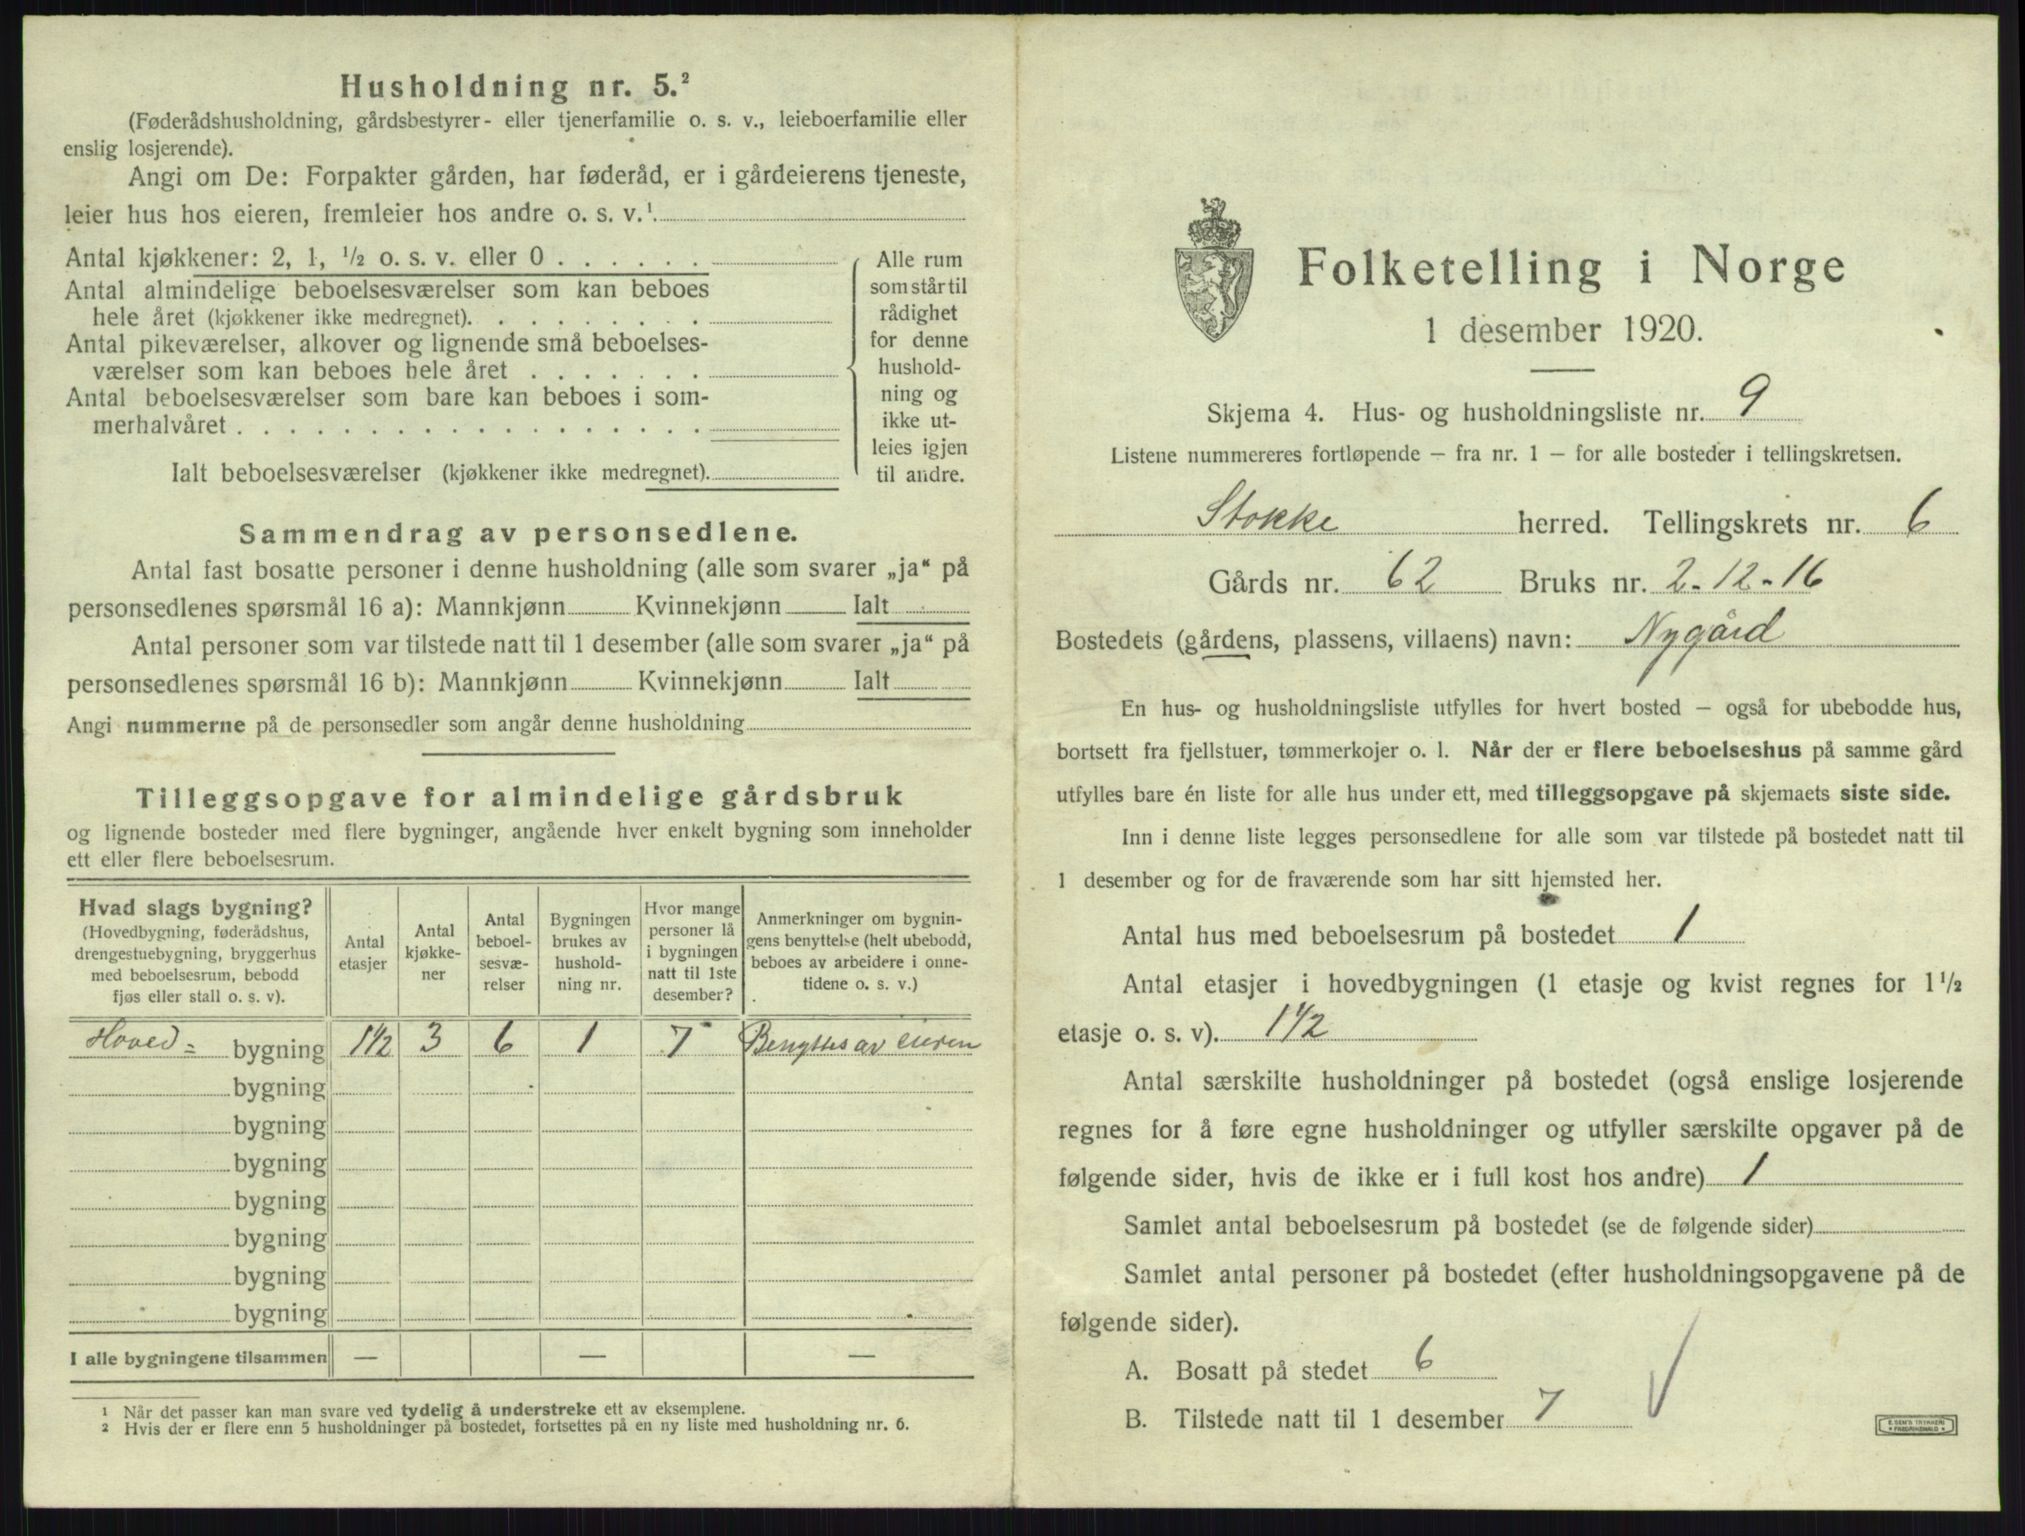 Husholdning nr. 5.²
(Føderådshusholdning, gårdsbestyrer- eller tjenerfamilie o. s. v., leieboerfamilie eller
enslig losjerende).
Angi om De: Forpakter gården, har føderåd, er i gårdeierens tjeneste,
leier hus hos eieren, fremleier hos andre o. s. v.¹
Antal kjøkkener: 2, 1, ½ o. s. v. eller 0 . . . . . .
Antal almindelige beboelsesværelser som kan beboes
hele året (kjøkkener ikke medregnet). . . . . . . . .
Antal pikeværelser, alkover og lignende små beboelses-
værelser som kan beboes hele året . . . . . . .
Antal beboelsesværelser som bare kan beboes i som-
merhalvåret . . . . . . . . . . . . . . . . . .
Ialt beboelsesværelser (kjøkkener ikke medregnet).
Alle rum
som står til
rådighet
for denne
hushold-
ning og
ikke ut-
leies igjen
til andre.
Sammendrag av personsedlene.
Antal fast bosatte personer i denne husholdning (alle som svarer „ja“ på
personsedlenes spørsmål 16 a): Mannkjønn Kvinnekjønn Ialt
Antal personer som var tilstede natt til 1 desember (alle som svarer „ja“ på
personsedlenes spørsmål 16 b): Mannkjønn Kvinnekjønn Ialt
Angi nummerne på de personsedler som angår denne husholdning
Tilleggsopgave for almindelige gårdsbruk
og lignende bosteder med flere bygninger, angående hver enkelt bygning som inneholder
ett eller flere beboelsesrum.
Hvad slags bygning?
(Hovedbygning, føderådshus,
drengestuebygning, bryggerhus
med beboelsesrum, bebodd
fjøs eller stall o. s. v).
Antal
etasjer
Antal
kjøkke-
ner
Antal
beboel-
sesvæ-
relser
Bygningen
brukes av
hushold-
ning nr.
Hvor mange
personer lå
i bygningen
natt til 1ste
desember?
Anmerkninger om bygnin-
gens benyttelse (helt ubebodd,
beboes av arbeidere i onne-
tidene o. s. v.)
Hoved- bygning 1½ 3 6 1 7 Benyttes av eieren
bygning
bygning
bygning
bygning
bygning
bygning
bygning
I alle bygningene tilsammen — — —
¹ Når det passer kan man svare ved tydelig å understreke ett av eksemplene.
² Hvis der er flere enn 5 husholdninger på bostedet, fortsettes på en ny liste med husholdning nr. 6.
Folketelling i Norge
1 desember 1920.
Skjema 4. Hus- og husholdningsliste nr. 9
Listene nummereres fortløpende – fra nr. 1 – for alle bosteder i tellingskretsen.
Stokke herred. Tellingskrets nr. 6
Gårds nr. 62 Bruks nr. 2-12-16
Bostedets (gårdens, plassens, villaens) navn: Nygård
En hus- og husholdningsliste utfylles for hvert bosted – også for ubebodde hus,
bortsett fra fjellstuer, tømmerkojer o. l. Når der er flere beboelseshus på samme gård
utfylles bare én liste for alle hus under ett, med tilleggsopgave på skjemaets siste side.
Inn i denne liste legges personsedlene for alle som var tilstede på bostedet natt til
1 desember og for de fraværende som har sitt hjemsted her.
Antal hus med beboelsesrum på bostedet 1
Antal etasjer i hovedbygningen (1 etasje og kvist regnes for 1½
etasje o. s. v). 1½
Antal særskilte husholdninger på bostedet (også enslige losjerende
regnes for å føre egne husholdninger og utfyller særskilte opgaver på de
følgende sider, hvis de ikke er i full kost hos andre) 1
Samlet antal beboelsesrum på bostedet (se de følgende sider)
Samlet antal personer på bostedet (efter husholdningsopgavene på de
følgende sider).
A. Bosatt på stedet 6
B. Tilstede natt til 1 desember 7